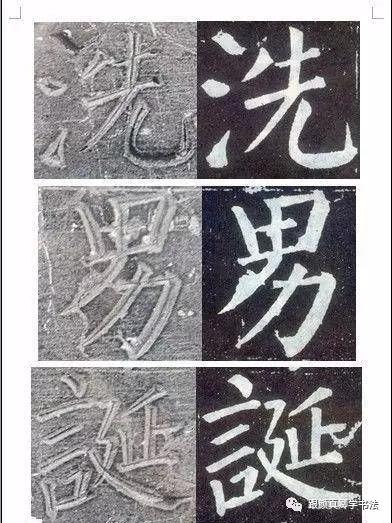 洗 洗
男 男
誕 誕
跟顾真琴学书法